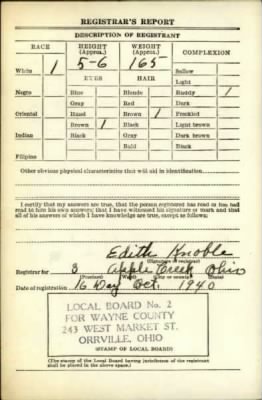 REGISTRAR'S REPORT
DESCRIPTION OF REGISTRANT
RACE HEIGHT (Approx.) WEIGHT (Approx.) COMPLEXION
5-6 165
White 1 Sallow
EYES HAIR Light
Negro Blue Blonde Ruddy 1
Gray Red Dark
Oriental Hazel Brown 1 Freckled
Brown 1 Black Light brown
Indian Black Gray Dark brown
Bald Black
Filipino
Other obvious physical characteristics that will aid in identification
I certify that my answers are true; that the person registered has read or has had
read to him his own answers; that I have witnessed his signature or mark and that
all of his answers of which I have knowledge are true, except as follows:
Edith Knoble
(Signature of registrar)
Registrar for 3 Apple Creek Ohio
(Precinct) (Ward) (City or county) (State)
Date of registration 16 Day Oct. 1940
LOCAL BOARD No. 2
FOR WAYNE COUNTY
243 WEST MARKET ST.
ORRVILLE, OHIO
(STAMP OF LOCAL BOARD)
(The stamp of the Local Board having jurisdiction of the registrant
shall be placed in the above space.)